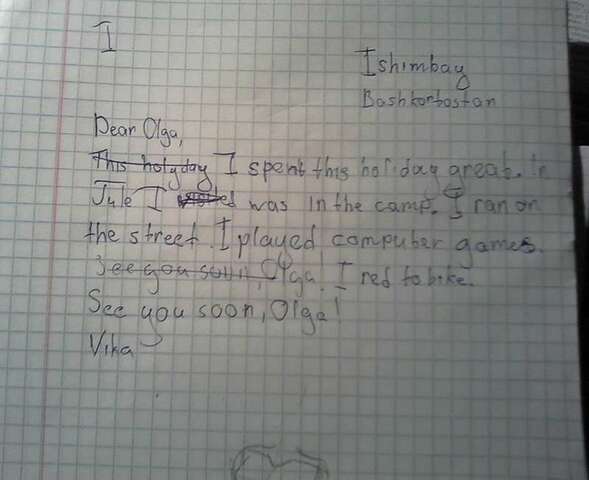 I
Ishimbay
Bashkortostan
Dear Olga,
This holyday I spent this holiday great. In
Jule I was in the camp. I ran on
the street. I played computer games.
See you soon, Olga. I red to bike.
See you soon, Olga!
Vika